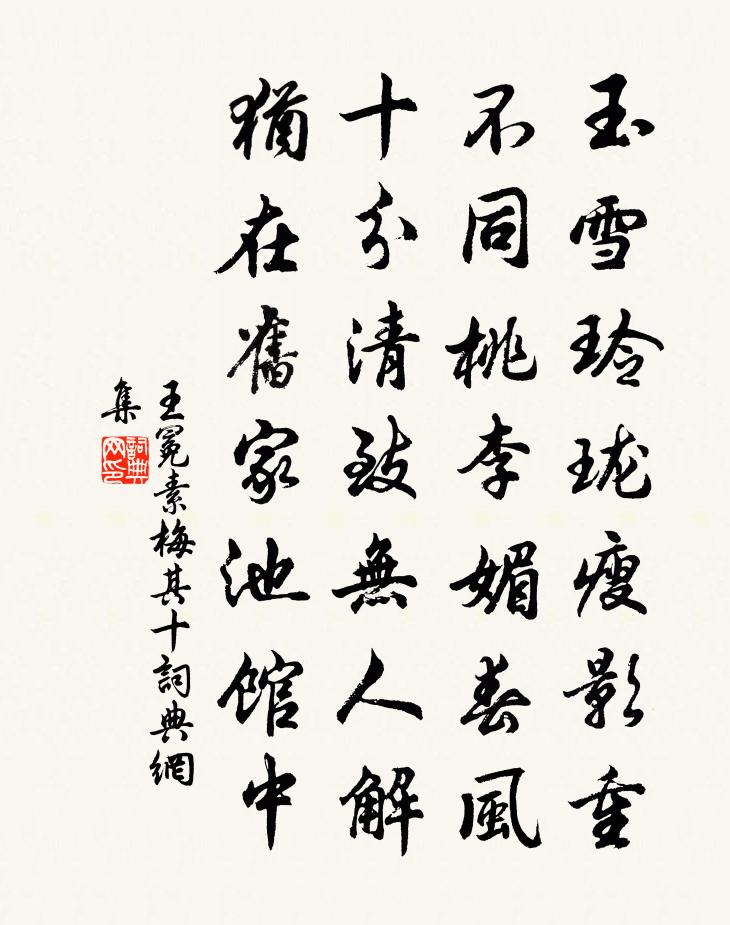 玉雪玲珑瘦影重
不同桃李媚春風
十分清致無人解
猶在舊家池館中
王冕素梅其十詞典網
集
詞典
网印